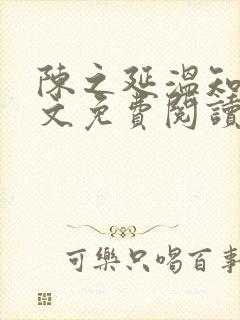 陳之延溫知
文免費閱讀
可樂只喝百事